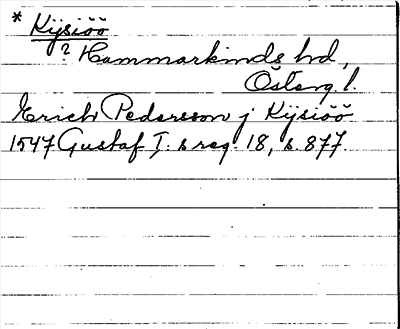 * Kijsiöö
? Hammarkinds hd,
Österg. l.
Erich Pedersson j Kijsiöö
1547 Gustaf I:s reg. 18, s. 877.